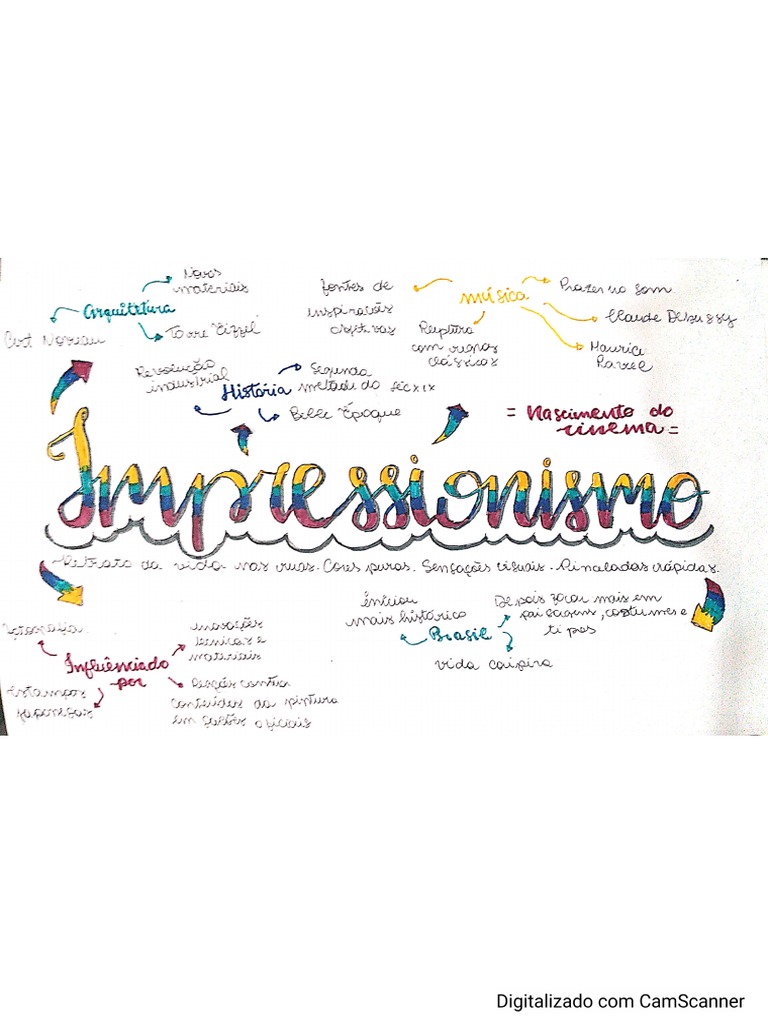 Novos
materiais
Arquitetura
Art Noveau
Torre Eiffel
fontes de
inspirações
objetivas
música
Prazer no som
Claude Debussy
Maurice
Ravel
Ruptura
com regras
clássicas
Revolução
industrial
História
Segunda
metade do séc XIX
Belle Époque
= Nascimento do
cinema =
Impressionismo
~Retrato da vida nas ruas. Cores puras. Sensações visuais. Pinceladas rápidas.
fotografia
Influênciado
por
inovações
técnicas e
materiais
estampas
japonesas
Reação contra
conteúdos da pintura
em salões oficiais
iniciou
mais histórico
Brasil
Depois focou mais em
paisagens, costumes e
tipos
vida caipira
Digitalizado com CamScanner